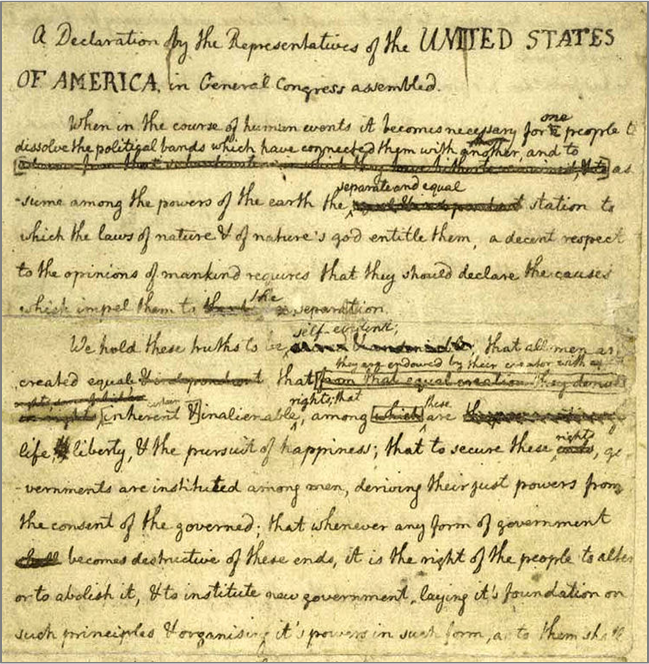 A Declaration by the Representatives of the UNITED STATES
OF AMERICA, in General Congress assembled.
one
When in the course of human events it becomes necessary for a people to
dissolve the political bands which have connected them with another, and to
as
separate and equal
-sume among the powers of the earth the equal & independant station to
which the laws of nature & of nature's god entitle them, a decent respect
to the opinions of mankind requires that they should declare the causes
the
which impel them to separation.
self-evident;
We hold these truths to be, that all men are
they are endowed by their creator with
created equal & independant that from that equal creation they derive
certain rights; that these
[inherent &] inalienable, among which are
rights
life, & liberty, & the pursuit of happiness; that to secure these ends, go
-vernments are instituted among men, deriving their just powers from
the consent of the governed; that whenever any form of government
shall becomes destructive of these ends, it is the right of the people to alter
or to abolish it, & to institute new government, laying it's foundation on
such principles & organising it's powers in such form, as to them shall